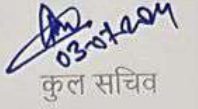 03-07-2024
कुल सचिव